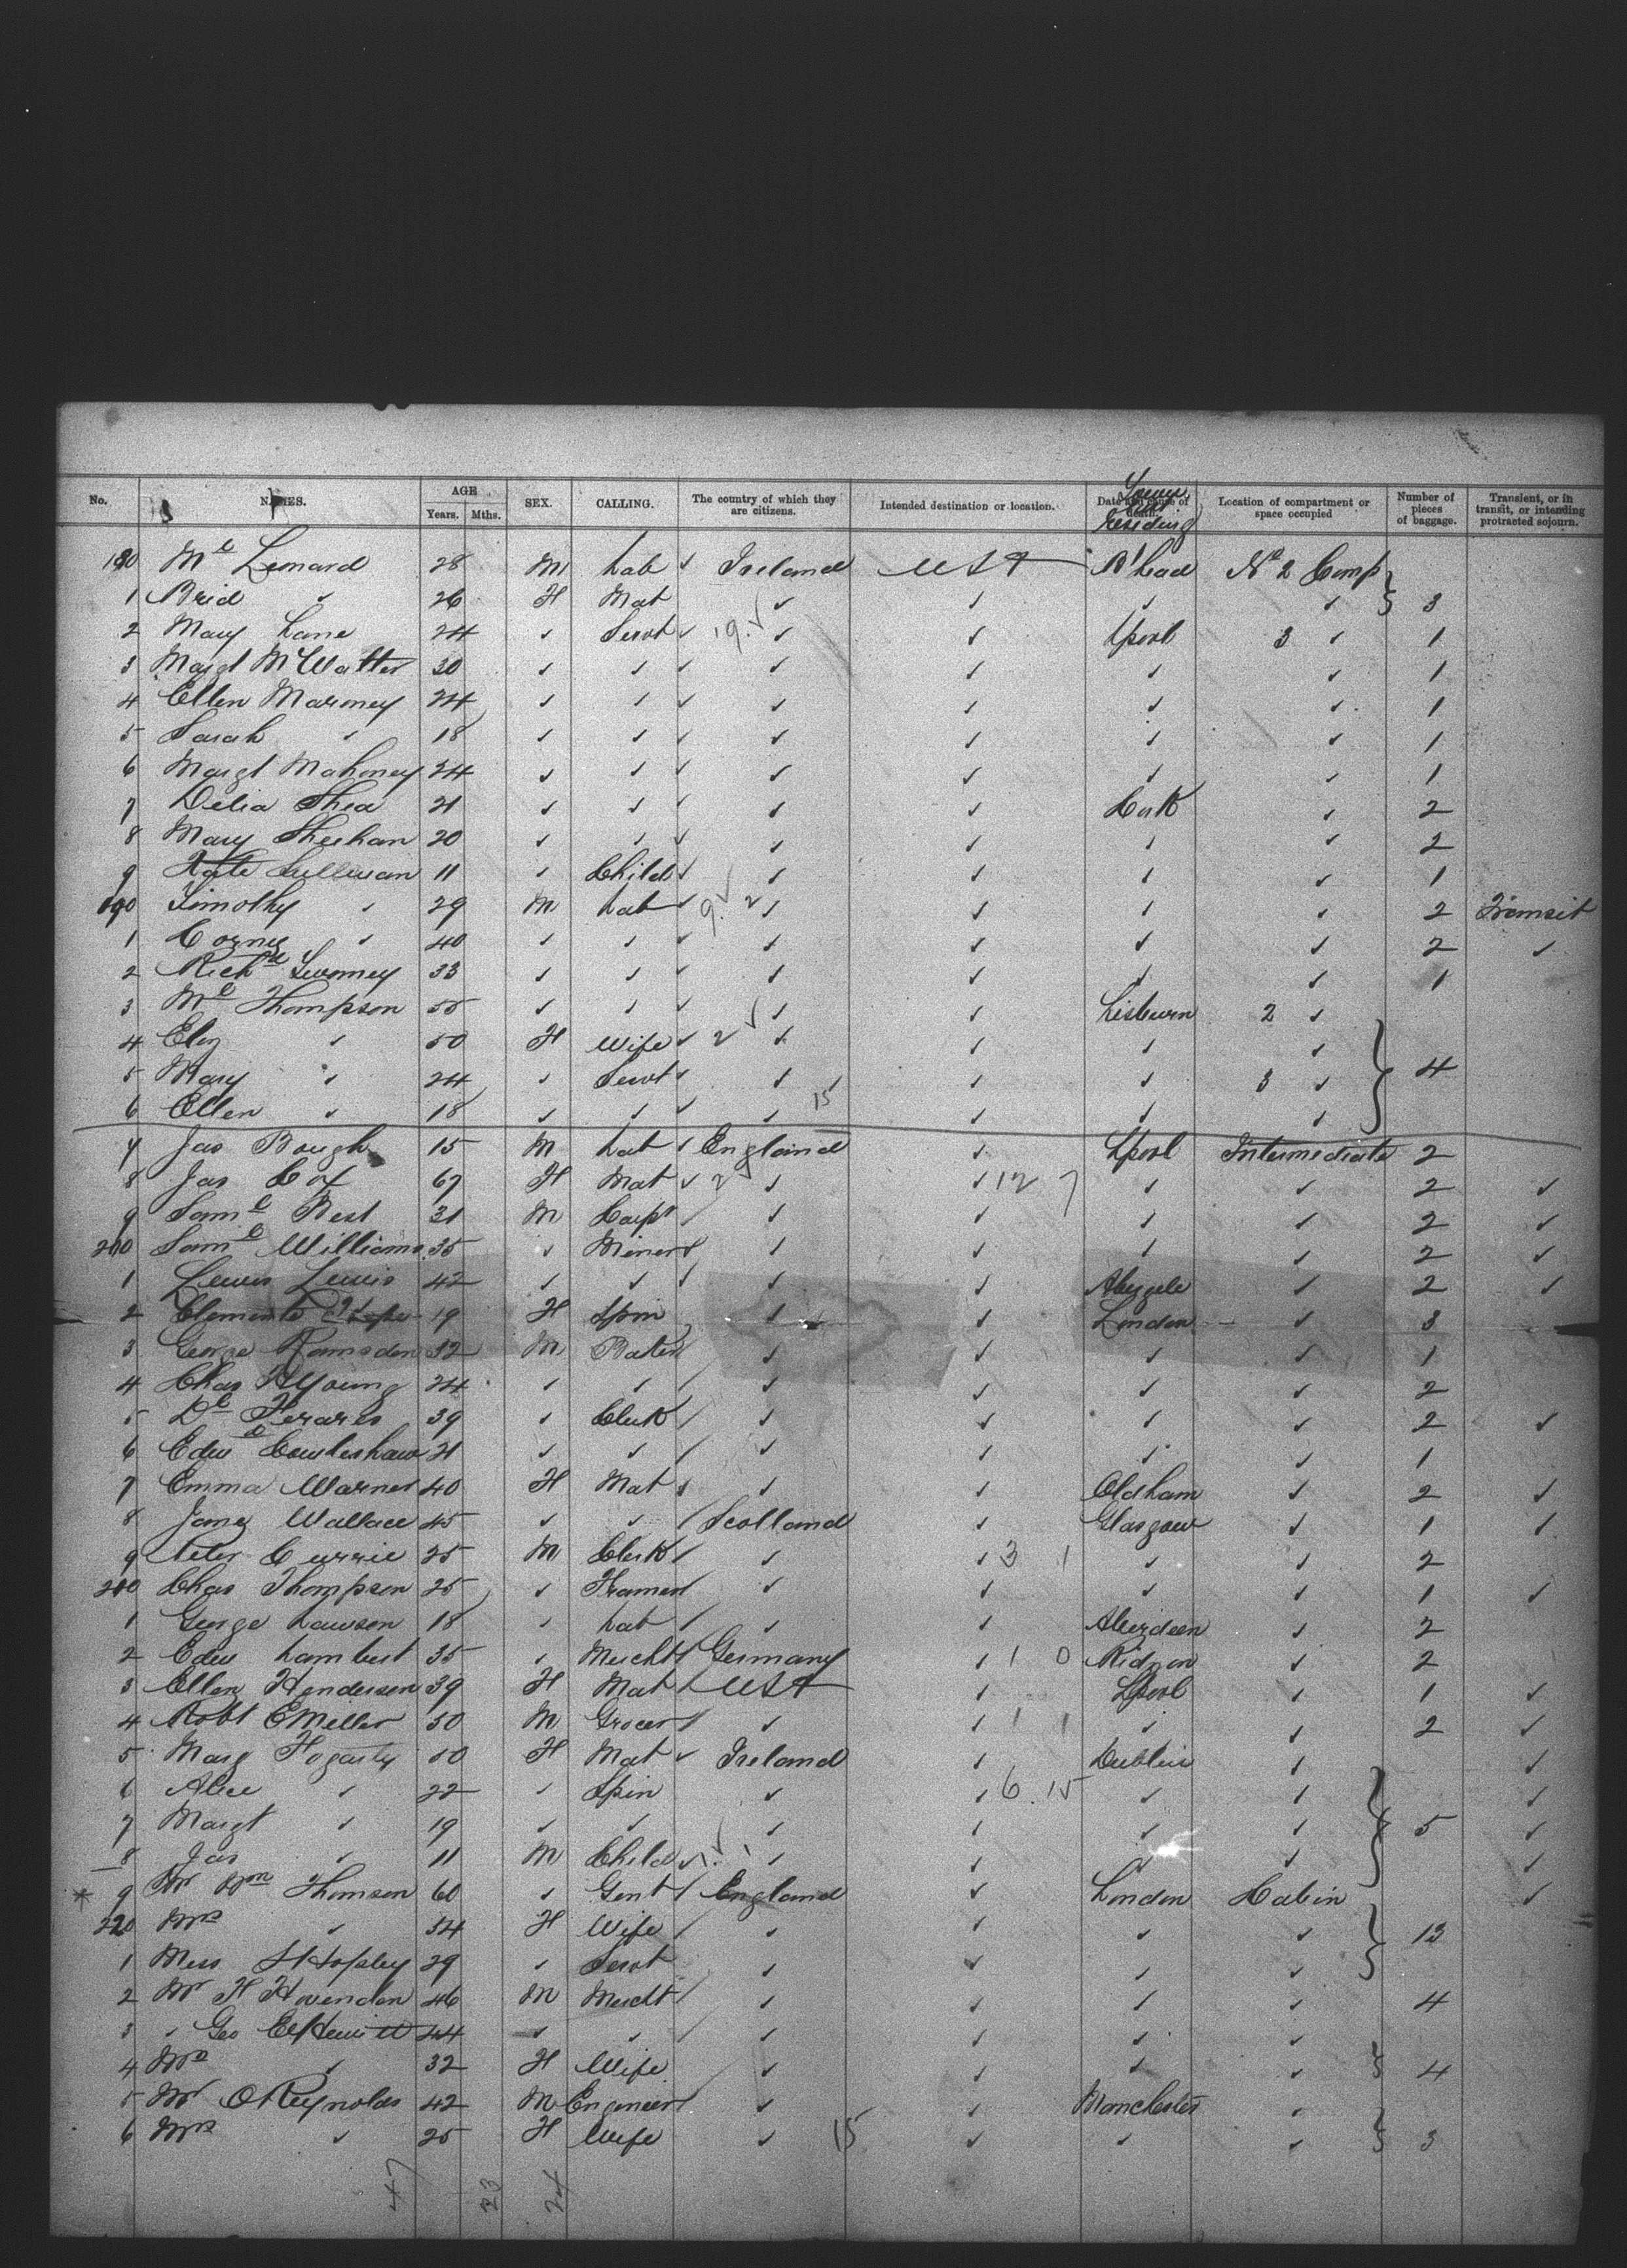 No. NAMES. AGE Years. Mths. SEX. CALLING. The country of which they are citizens. Intended destination or location. Date and cause of death. Residing Location of compartment or space occupied Number of pieces of baggage. Transient, or in transit, or intending protracted sojourn.
180 Ml Leonard 28 M Lab ✓ Ireland USA B'head No 2 Comp
1 Brid ✓ 26 F Mat ✓ ✓ ✓ ✓ 3
2 Mary Lane 24 ✓ Servt ✓ 19 ✓ ✓ ✓ Lpool 3 ✓ 1
3 Margt McWatter 30 ✓ ✓ ✓ ✓ ✓ ✓ ✓ 1
4 Ellen Maroney 24 ✓ ✓ ✓ ✓ ✓ ✓ ✓ 1
5 Sarah ✓ 18 ✓ ✓ ✓ ✓ ✓ ✓ ✓ 1
6 Margt Mahoney 24 ✓ ✓ ✓ ✓ ✓ ✓ ✓ 1
7 Delia Shea 21 ✓ ✓ ✓ ✓ ✓ Cork ✓ 2
8 Mary Sheehan 20 ✓ ✓ ✓ ✓ ✓ ✓ ✓ 2
9 Kate Sullivan 11 ✓ Child ✓ ✓ ✓ ✓ ✓ 1
190 Timothy ✓ 29 M Lab ✓ 9 2 ✓ ✓ ✓ ✓ 2 Transit
1 Corny ✓ 40 ✓ ✓ ✓ ✓ ✓ ✓ ✓ 2 ✓
2 Richd Twomey 33 ✓ ✓ ✓ ✓ ✓ ✓ ✓ 1
3 Ml Thompson 55 ✓ ✓ ✓ ✓ ✓ Lisburn 2 ✓
4 Eliz ✓ 50 F Wife ✓ 2 ✓ ✓ ✓ ✓
5 Mary ✓ 24 ✓ Servt ✓ ✓ ✓ ✓ 3 ✓ 4
6 Ellen ✓ 18 ✓ ✓ ✓ ✓ 15 ✓ ✓ ✓
7 Jas Bough 15 M Lab ✓ England ✓ Lpool Intermediate 2
8 Jas Cox 67 F Mat ✓ 2 ✓ ✓ 12 7 ✓ ✓ 2 ✓
9 Saml Best 31 M Carpt ✓ ✓ ✓ ✓ 2 ✓
200 Saml Williams 35 ✓ Miner ✓ ✓ ✓ ✓ 2 ✓
1 Lewis Lewis 42 ✓ ✓ ✓ ✓ ✓ Abergele ✓ 2 ✓
2 19 F Spin ✓ ✓ London ✓ 3
3 George Ramsden 32 M ✓ ✓ ✓ ✓ 1
4 Chas Young 24 ✓ ✓ ✓ ✓ ✓ ✓ 2
5 39 ✓ Clerk ✓ ✓ ✓ ✓ 2 ✓
6 Edwd Cowleshaw 21 ✓ ✓ ✓ ✓ ✓ ✓ 1
7 Emma Warner 40 F Mat ✓ ✓ ✓ Oldham ✓ 2 ✓
8 Wallace 45 ✓ ✓ Scotland ✓ Glasgow ✓ 1 ✓
9 Peter Currie 25 M Clerk ✓ ✓ 3 1 ✓ ✓ 2
210 Chas Thompson 25 ✓ ✓ ✓ ✓ ✓ 1 ✓
1 George Lawson 18 ✓ Lab ✓ ✓ Aberdeen ✓ 2
2 Edw Lambert 35 ✓ Mercht Germany ✓ 1 0 ✓ 2
3 Ellen Henderson 39 F Mat USA ✓ Lpool ✓ 1 ✓
4 Robt E Meller 30 M Grocer ✓ ✓ 1 1 ✓ ✓ 2 ✓
5 Mary Fogarty 50 F Mat ✓ Ireland ✓ Dublin ✓ ✓
6 Alice ✓ 22 ✓ Spin ✓ ✓ 6 15 ✓ ✓ ✓
7 Margt ✓ 19 ✓ ✓ ✓ ✓ ✓ ✓ 5 ✓
8 Jas ✓ 11 M Child ✓ 1 1 ✓ ✓ ✓ ✓ ✓
* 9 Mr Wm Thomson 60 ✓ Gent England ✓ London Cabin ✓
220 Mrs ✓ 54 F Wife ✓ ✓ ✓ ✓ 13
1 Miss 29 ✓ Servt ✓ ✓ ✓ ✓
2 Mr H Hovenden 46 M Mercht ✓ ✓ ✓ ✓ 4
3 ✓ Geo E Hewitt 44 ✓ ✓ ✓ ✓ ✓ ✓
4 Mrs ✓ 32 F Wife ✓ ✓ ✓ ✓ 4
5 Mr O Reynolds 42 M Engineer ✓ ✓ Manchester ✓
6 Mrs ✓ 25 F Wife ✓ 15 ✓ ✓ ✓ 3
47 23 24